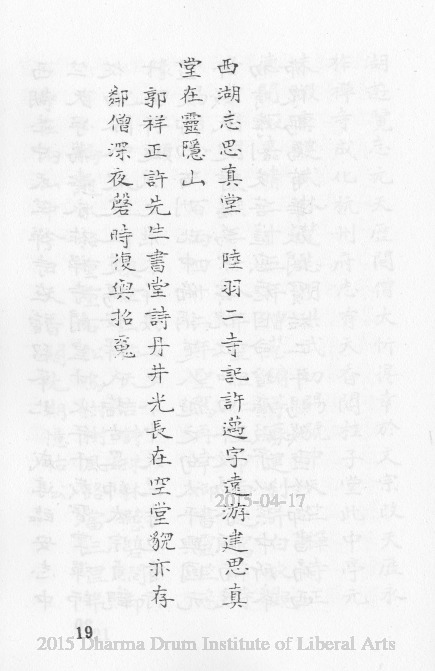 西湖志思真堂 陸羽二寺記許邁字遠游建思真
堂在靈隱山
郭祥正許先生書堂詩丹井光長在空堂貌亦存
鄰僧深夜磬時復與招冤
2015-04-17
19
2015 Dharma Drum Institute of Liberal Arts